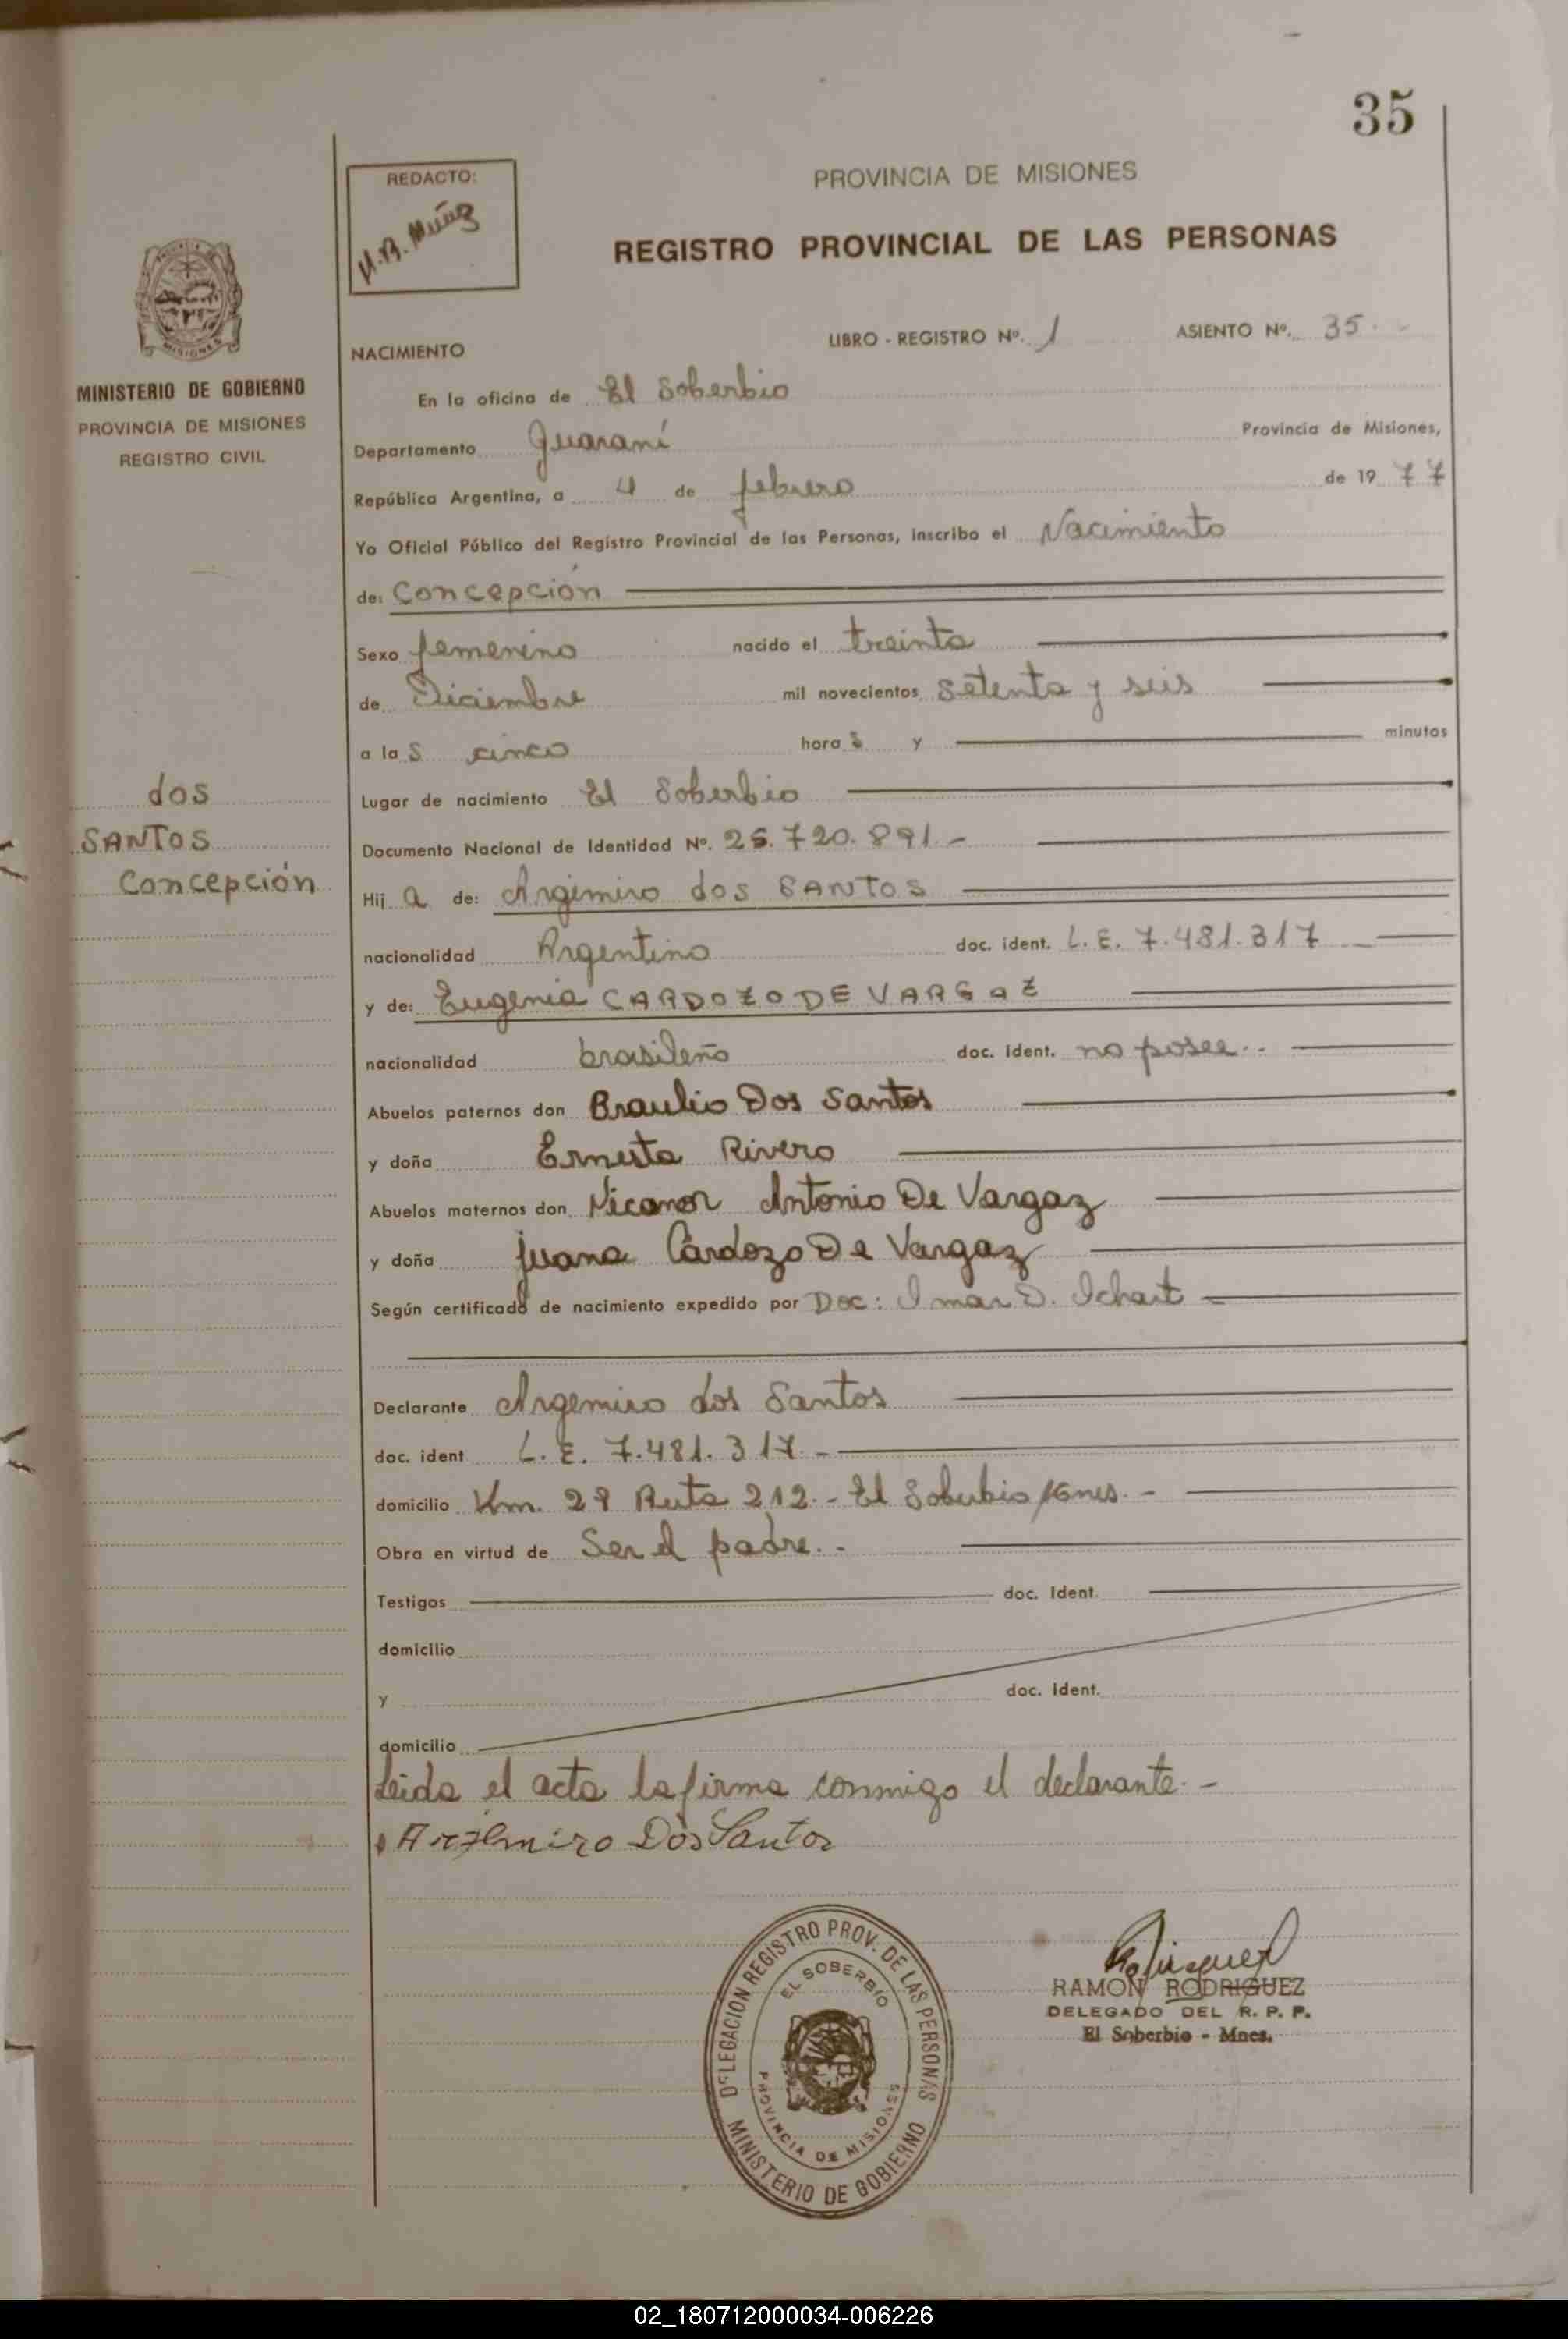 35
REDACTO:
H.B. Muñoz
PROVINCIA DE MISIONES
REGISTRO PROVINCIAL DE LAS PERSONAS
MISIONES
MINISTERIO DE GOBIERNO
PROVINCIA DE MISIONES
REGISTRO CIVIL
dos
SANTOS
Concepción
NACIMIENTO LIBRO - REGISTRO Nº. 1 ASIENTO Nº. 35.-
En la oficina de El Soberbio
Departamento Guaraní Provincia de Misiones,
República Argentina, a 4 de febrero de 19 77
Yo Oficial Público del Registro Provincial de las Personas, inscribo el Nacimiento
de: Concepción
Sexo femenino nacido el treinta
de Diciembre mil novecientos setenta y seis
a la s cinco hora s y minutos
Lugar de nacimiento El Soberbio
Documento Nacional de Identidad Nº. 25.720.891.-
Hij a de: Argemiro dos SANTOS
nacionalidad Argentino doc. ident. L.E. 7.481.317
y de: Eugenia CARDOZO DE VARGAZ
nacionalidad brasileña doc. ident. no posee.-
Abuelos paternos don Braulio Dos Santos
y doña Ernesta Rivero
Abuelos maternos don Nicanor Antonio De Vargaz
y doña Juana Cardozo De Vargaz
Según certificado de nacimiento expedido por Doc: Imar D. Ichart
Declarante Argemiro dos Santos
doc. ident L.E. 7.481.317.-
domicilio Km. 28 Ruta 212.- El Soberbio Mnes.-
Obra en virtud de Ser el padre.-
Testigos doc. ident.
domicilio
y doc. ident.
domicilio
Leida el acta la firma conmigo el declarante.-
Arzemiro Dos Santos
DELEGACION REGISTRO PROV. DE LAS PERSONAS
EL SOBERBIO
PROVINCIA DE MISIONES
MINISTERIO DE GOBIERNO
RAMON RODRIGUEZ
DELEGADO DEL R. P. P.
El Soberbio - Mnes.
02_180712000034-006226